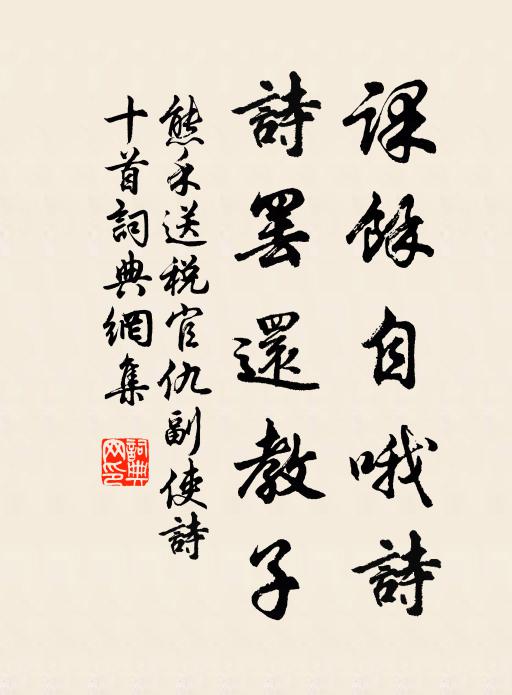 課餘自哦詩
詩罷還教子
熊禾送税官仇副使詩
十首詞典網集
詞典
网印